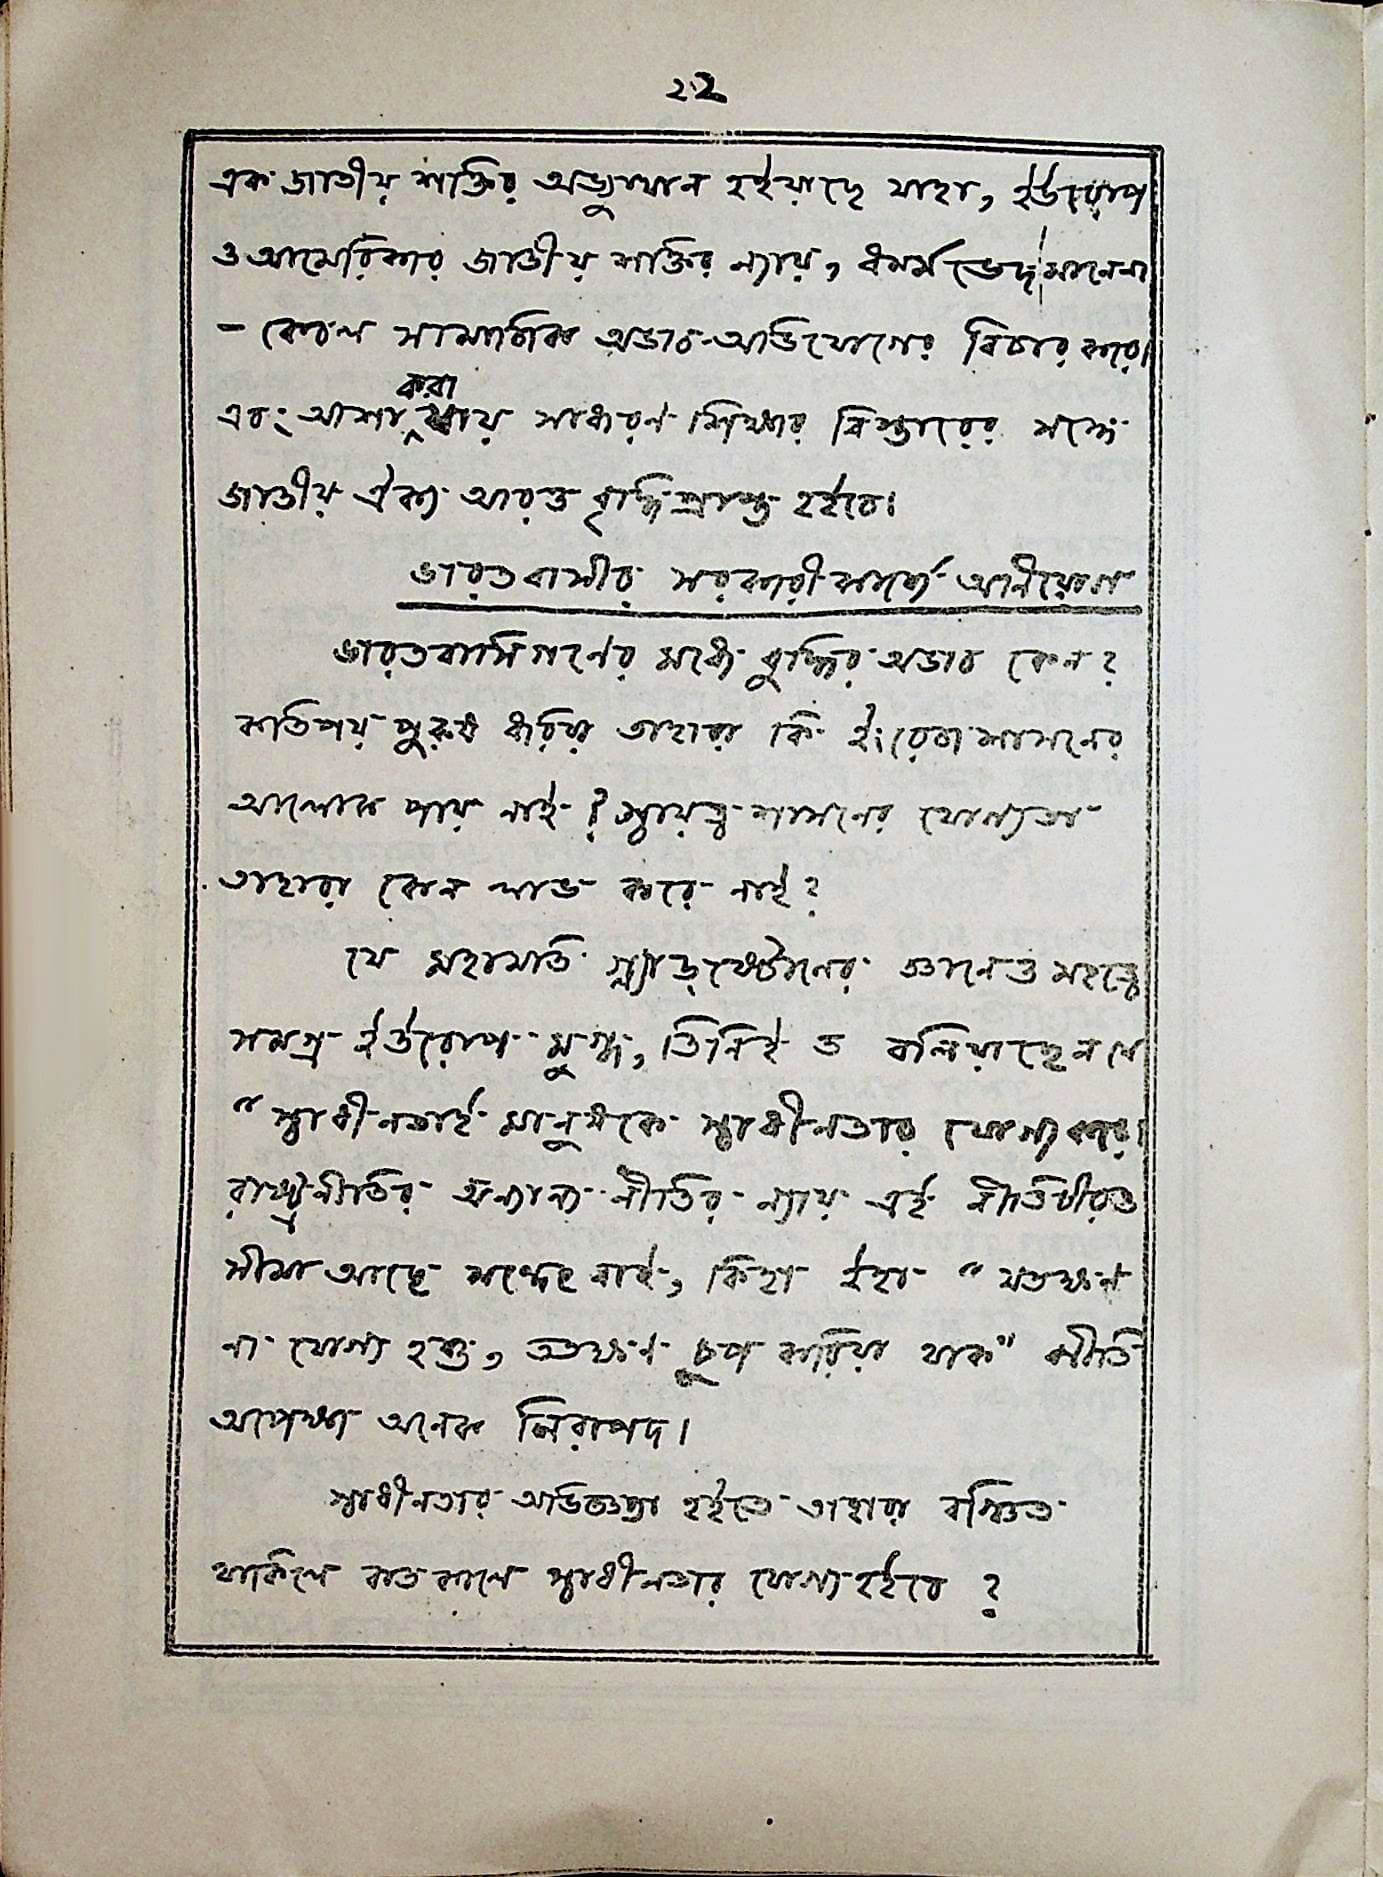 ২২
এক জাতীয় শক্তির অভ্যুত্থান হইয়াছে যাহা, ইউরোপ
ও আমেরিকার জাতীয় শক্তির ন্যায়, ধর্ম্ম ভেদ মানেনা
- কেবল সামাজিক অভাব-অভিযোগের বিচার করে।
করা
এবং আশা যায় সাধারণ শিক্ষার বিস্তারের সঙ্গে
জাতীয় ঐক্য আরও বৃদ্ধি প্রাপ্ত হইবে।
ভারতবাসীর সরকারী কার্য্যে অনিয়োগ
ভারতবাসিগণের মধ্যে বুদ্ধির অভাব কেন?
কতিপয় পুরুষ ধরিয়া তাহারা কি ইংরেজ শাসনের
আলোক পায় নাই? স্বায়ত্ত শাসনের যোগ্যতা
তাহারা কেন লাভ করে নাই?
যে মহামতি গ্ল্যাড্‌ষ্টোনের জ্ঞানে ও মহত্ত্বে
সমগ্র ইউরোপ মুগ্ধ, তিনিই ত বলিয়াছেন যে
"স্বাধীনতাই মানুষকে স্বাধীনতার যোগ্য করে।
রাষ্ট্রনীতির অন্যান্য নীতির ন্যায় এই নীতিটীরও
সীমা আছে সন্দেহ নাই, কিন্তু ইহা "যতক্ষণ
না যোগ্য হও, ততক্ষণ চুপ করিয়া থাক" নীতি
অপেক্ষা অনেক নিরাপদ।
স্বাধীনতার অভিজ্ঞতা হইতে তাহারা বঞ্চিত
থাকিলে কত কালে স্বাধীনতার যোগ্য হইবে?